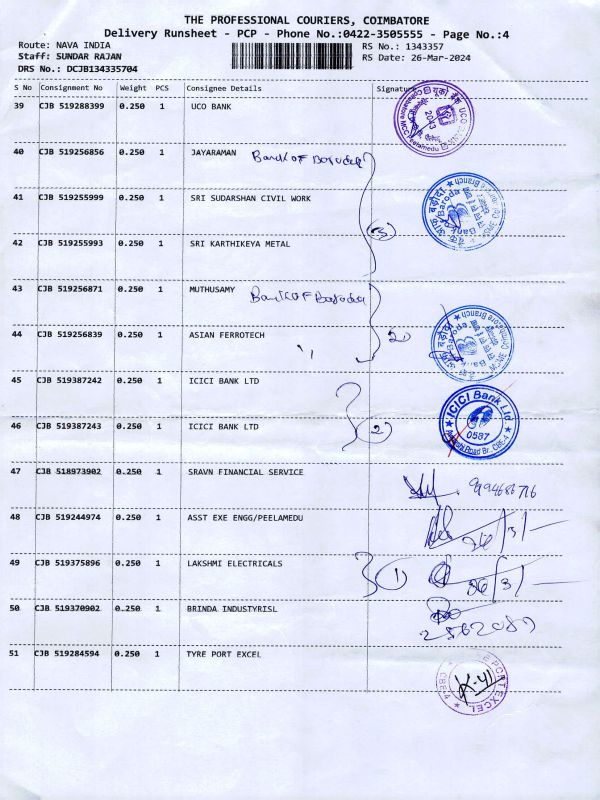 THE PROFESSIONAL COURIERS, COIMBATORE
Delivery Runsheet - PCP - Phone No.:0422-3505555 - Page No.:4
Route: NAVA INDIA RS No.: 1343357
Staff: SUNDAR RAJAN RS Date: 26-Mar-2024
DRS No.: DCJB134335704
S No Consignment No Weight PCS Consignee Details Signature
39 CJB 519288399 0.250 1 UCO BANK
40 CJB 519256856 0.250 1 JAYARAMAN Bank of Baroda
41 CJB 519255999 0.250 1 SRI SUDARSHAN CIVIL WORK
42 CJB 519255993 0.250 1 SRI KARTHIKEYA METAL
3
43 CJB 519256871 0.250 1 MUTHUSAMY Bank of Baroda
44 CJB 519256839 0.250 1 ASIAN FERROTECH
45 CJB 519387242 0.250 1 ICICI BANK LTD
ICICI Bank Ltd
0587
46 CJB 519387243 0.250 1 ICICI BANK LTD 2
47 CJB 518973902 0.250 1 SRAVN FINANCIAL SERVICE
48 CJB 519244974 0.250 1 ASST EXE ENGG/PEELAMEDU 26/3/-
49 CJB 519375896 0.250 1 LAKSHMI ELECTRICALS 1
50 CJB 519370902 0.250 1 BRINDA INDUSTYRISL
51 CJB 519284594 0.250 1 TYRE PORT EXCEL